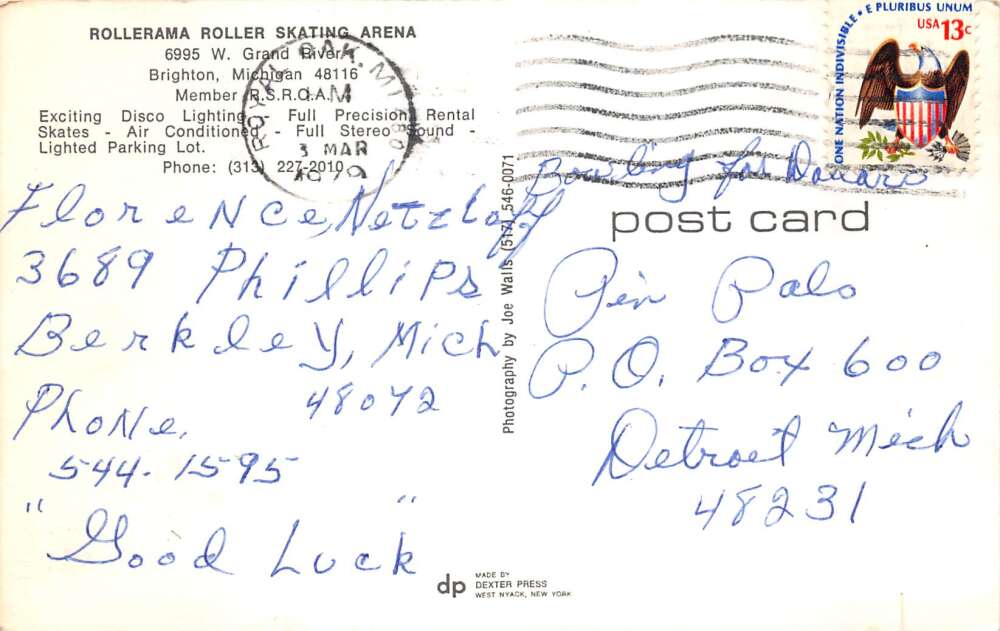 ROLLERAMA ROLLER SKATING ARENA
6995 W. Grand River
Brighton, Michigan 48116
Member R.S.R.O.A.
Exciting Disco Lighting - Full Precision Rental
Skates - Air Conditioned - Full Stereo Sound -
Lighted Parking Lot.
Phone: (313) 227-2010
ROYAL OAK, MI
3 MAR
1979
E PLURIBUS UNUM
USA 13c
ONE NATION INDIVISIBLE
Florence Netzloff
3689 Phillips
Berkley, Mich
48072
Phone.
544-1595
"Good Luck"
Photography by Joe Walls (517) 546-0071
Bowling for
post card
Pin Pals
P.O. Box 600
Detroit Mich
48231
dp
MADE BY
DEXTER PRESS
WEST NYACK, NEW YORK